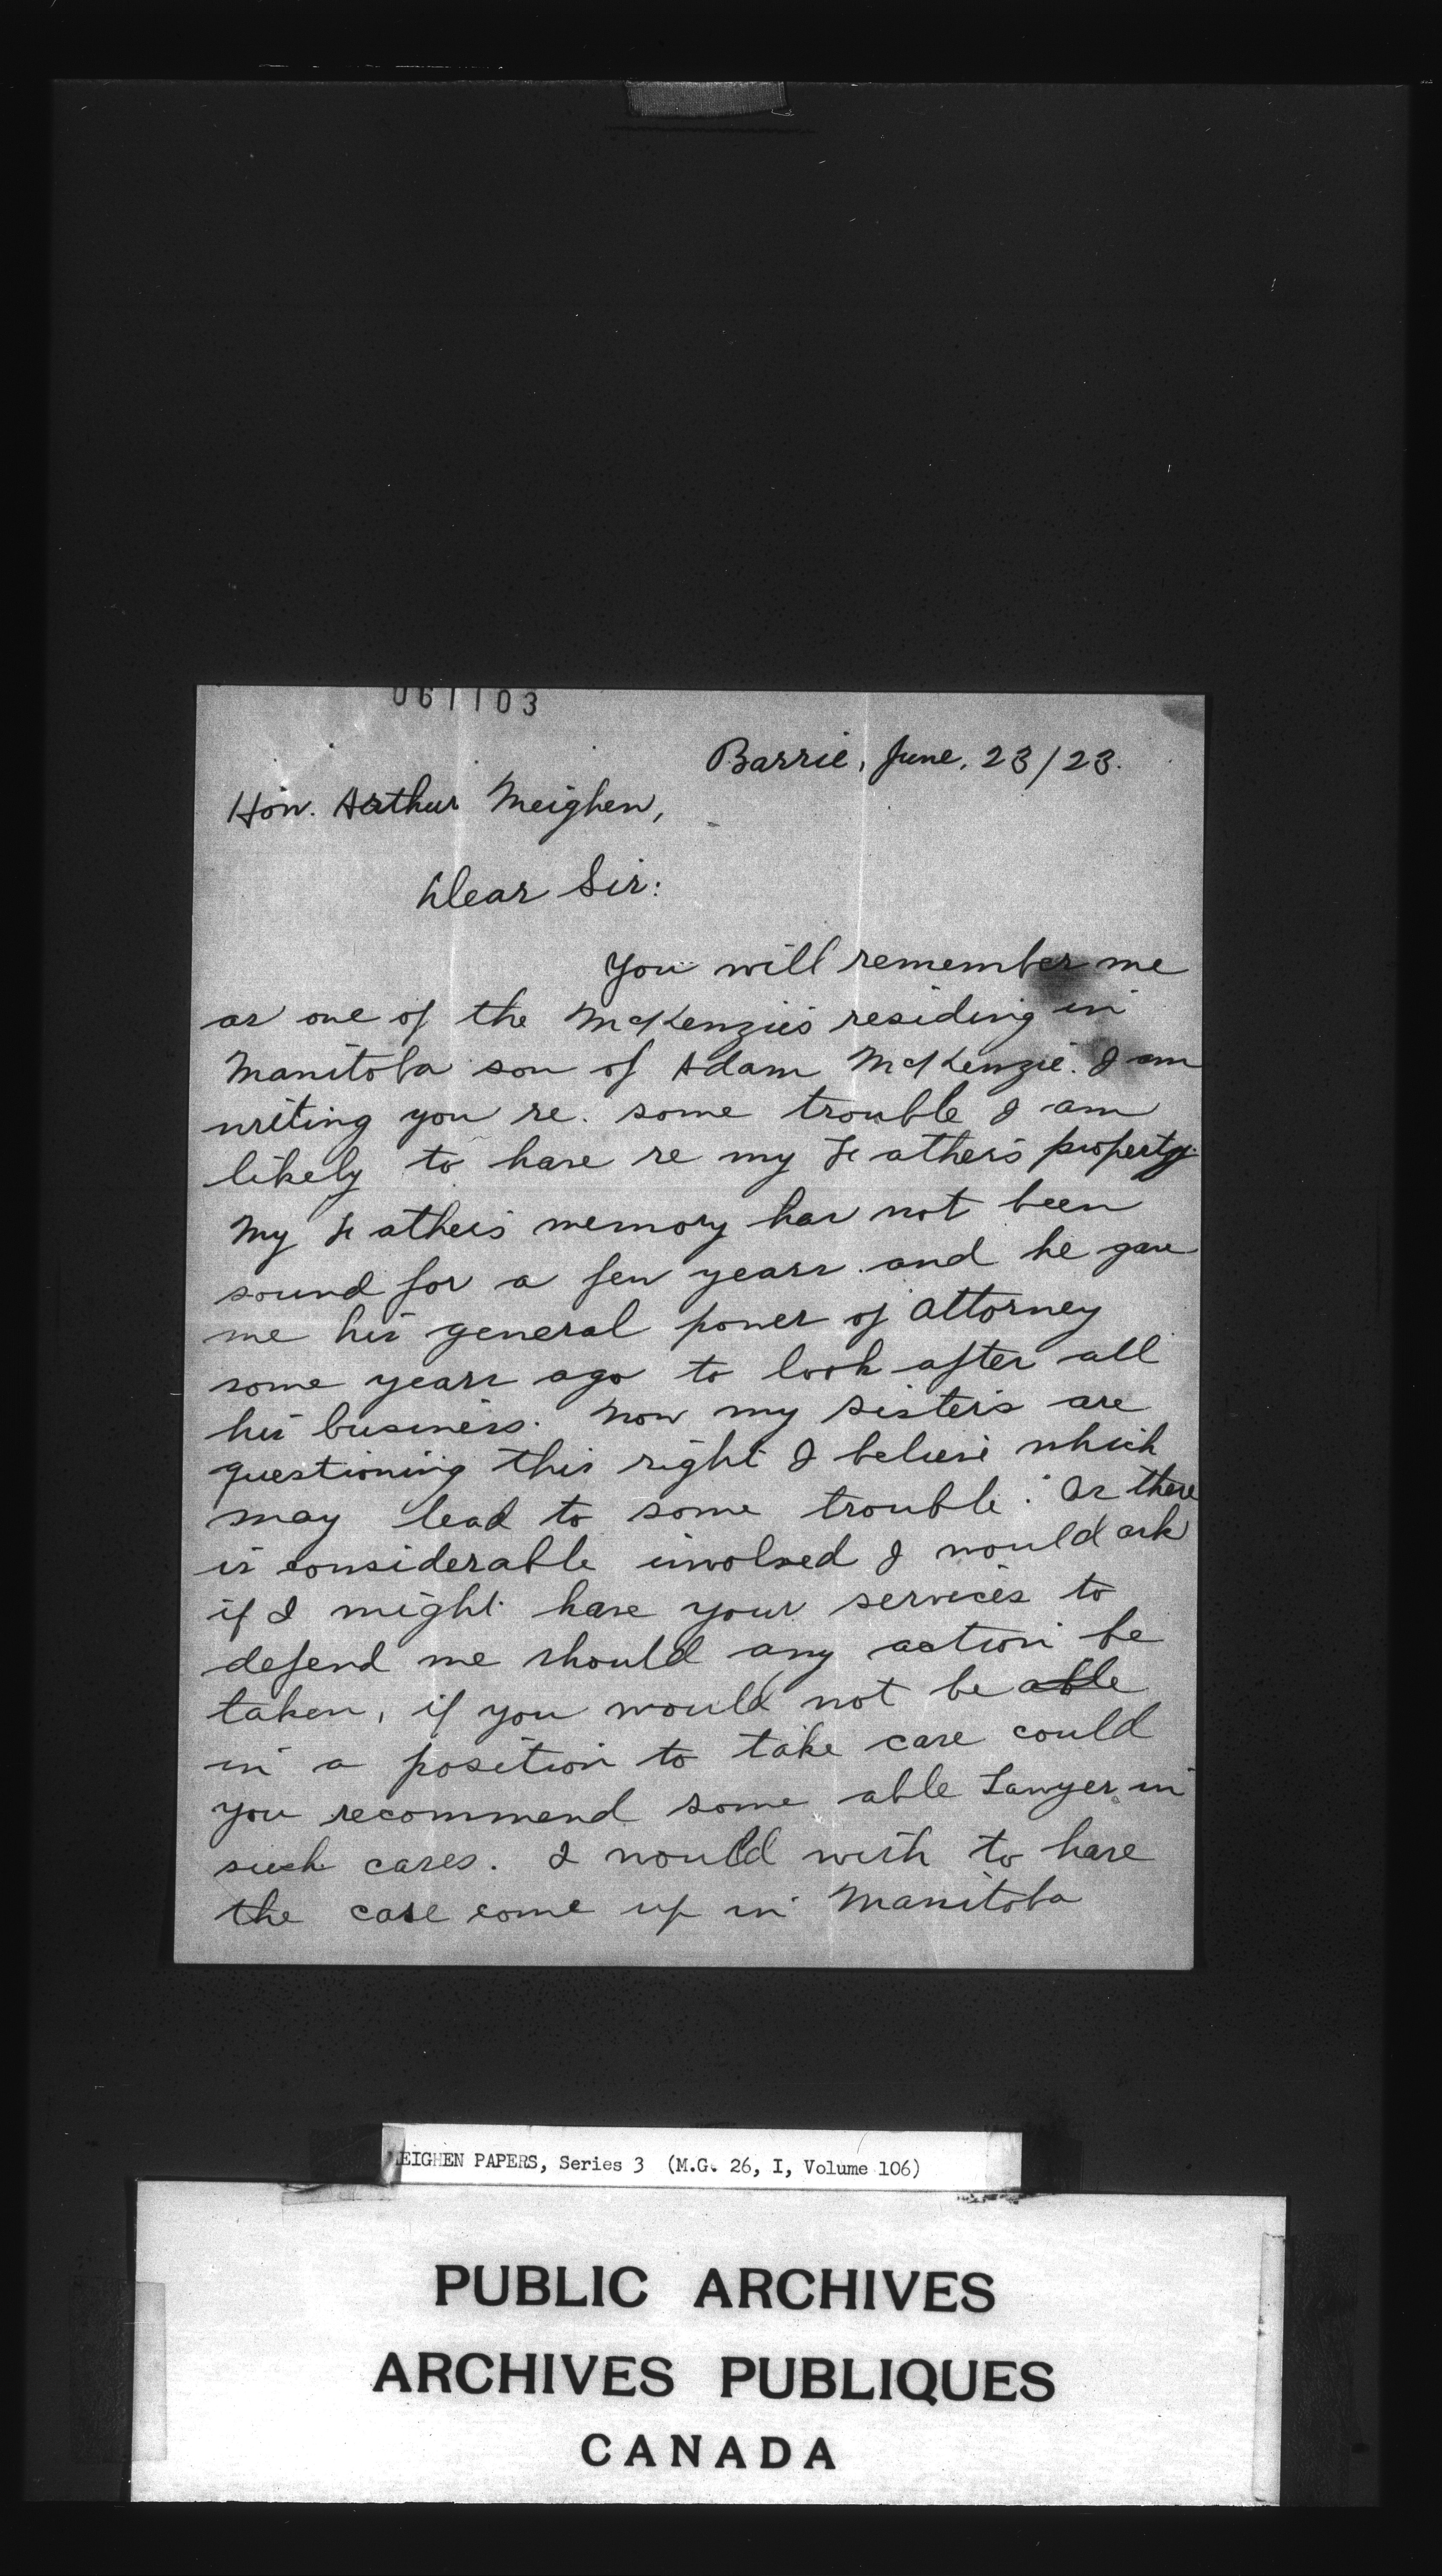 061103
Barrie, June, 23/23.
Hon. Arthur Meighen,
Dear Sir:
You will remember me
as one of the McKenzies residing in
Manitoba son of Adam McKenzie. I am
writing you re. some trouble I am
likely to have re my Father's property.
My Father's memory has not been
sound for a few years and he gave
me his general power of Attorney
some years ago to look after all
his business. Now my sisters are
questioning this right I believe which
may lead to some trouble. As there
is considerable involved I would ask
if I might have your services to
defend me should any action be
taken, if you would not be able
in a position to take care could
you recommend some able Lawyer in
such cases. I would wish to have
the case come up in Manitoba
MEIGHEN PAPERS, Series 3 (M.G. 26, I, Volume 106)
PUBLIC ARCHIVES
ARCHIVES PUBLIQUES
CANADA